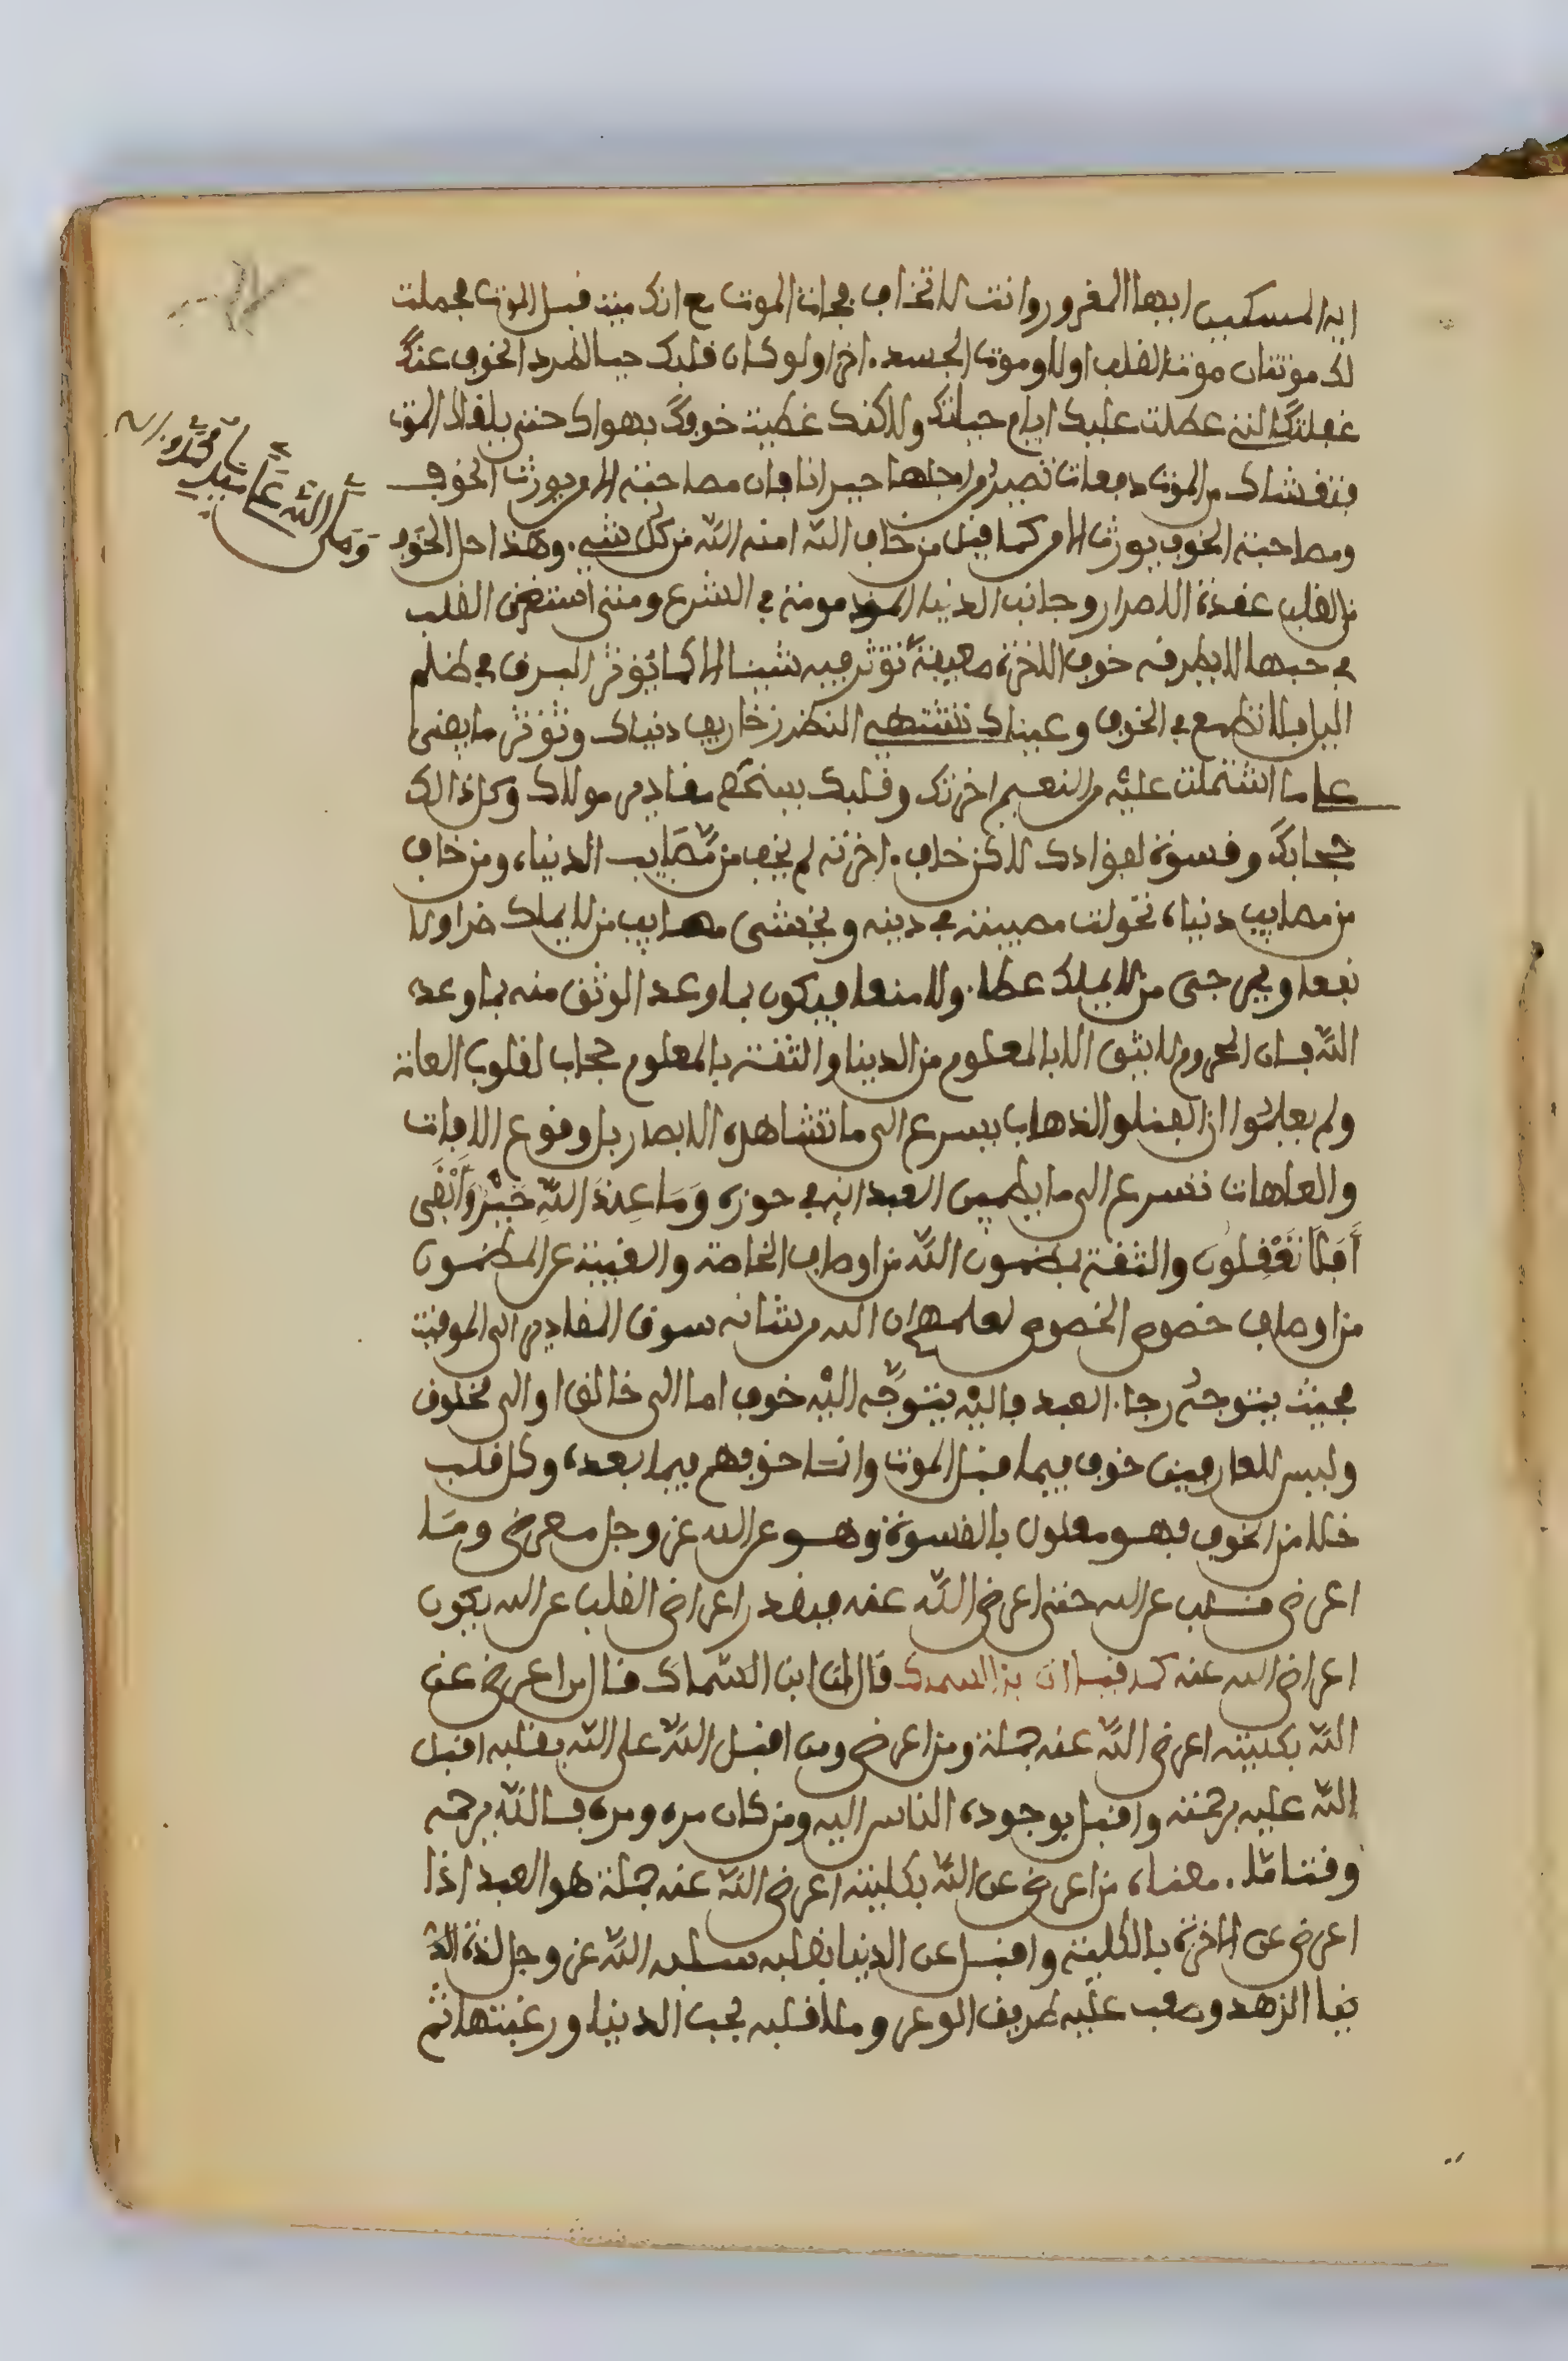 ايه المسكين ايها المغرور وانت لا تخاف فجات الموت مع انك ميت قبل الموت فجعلت
لك موتتان موت القلب اولا وموت الجسد اخرا ولو كان قلبك حيا لطرد الخوف عنك
غفلتك التي عطلت عليك ايام حياتك ولاكنك غطيت خوفك بهواك حتى يلقاك الموت
فتغشاك من الموت دفعات تصير من اجلها حيرانا فان مصاحبة الامن يورث الخوف
ومصاحبة الخوف يورث الامن كما قيل من خاف الله امنه الله من كل شيء وهذا حل الخوف
من القلب عقدة الاصرار وجانب الدنيا المذمومة في الشرع ومتى استغرق القلب
في حبها لا يطرقه خوف الاخرة ضعيفة تؤثر فيه شيئا الا كما يؤثر البرق في ظلم
اليل فلا تطمع في الخوف وعيناك تشتهي النظر زخاريف دنياك وتؤثر ما يفنى
على ما اشتملت عليه من النعيم اخرتك وقلبك يتهم مقادير مولاك وكل ذالك
حجابك وقسوة لفؤادك لاكن خاف اخرته لم يخف من مصايب الدنيا، ومن خاف
من مصايب دنياه تحولت مصيبته في دينه ويخشى مصايب من لا يملك ضرا ولا
نفعا ويرجى من لا يملك عطا ولا منعا فيكون بما وعد اوثق منه بما وعده
الله فان المحروم لا يثق الا بالمعلوم من الدنيا والثقة بالمعلوم حجاب لقلوب العامة
ولم يعلموا ان الفنا والذهاب يسرع الى ما تشاهده الابصر بل وقوع الافات
والعاهات تسرع الى ما يطمين العبد اليه في حوزه وَمَا عِندَ اللَّهِ خَيْرٌ وَأَبْقَى
أَفَلَا تَعْقِلُونَ والثقة بمضمون الله من اوصاف الخاصة والغيبة عن المضمون
من اوصاف خصوص الخصوص لعلمهم ان الله من شانه سوق المقادير الى المواقيت
فحيث يتوجه رجا العبد فاليه يتوجه اليه خوف اما الى خالق او الى مخلوق
وليس للعارفين خوف فيما قبل الموت وانما خوفهم فيما بعده وكل قلب
خلا من الخوف فهو معلول بالقسوة وهو عن الله عز وجل معرض وما
اعرض قلب عن الله حتى اعرض الله عنه فبقدر اعراض القلب عن الله يكون
اعراض الله عنه كما قيل ان بن السمك قال لنا ابن السماك قال من اعرض عن
الله بكليته اعرض الله عنه جملة ومن اعرض ومن اقبل الله على الله بقلبه اقبل
الله عليه برحمته واقبل بوجوده الناس اليه ومن كان مره ومره فالله يرحمه
وقتا ما. معناه من اعرض عن الله بكليته اعرض الله عنه جملة هو العبد اذا
اعرض عن الاخرة بالكلية واقبل عن الدنيا بقلبه سلبه الله عز وجل لذة الد
نيا الزهد وصعب عليه طريف الوعر وملا قلبه بحب الدنيا ورغبتها ثم
وصلى الله على سيدنا محمد